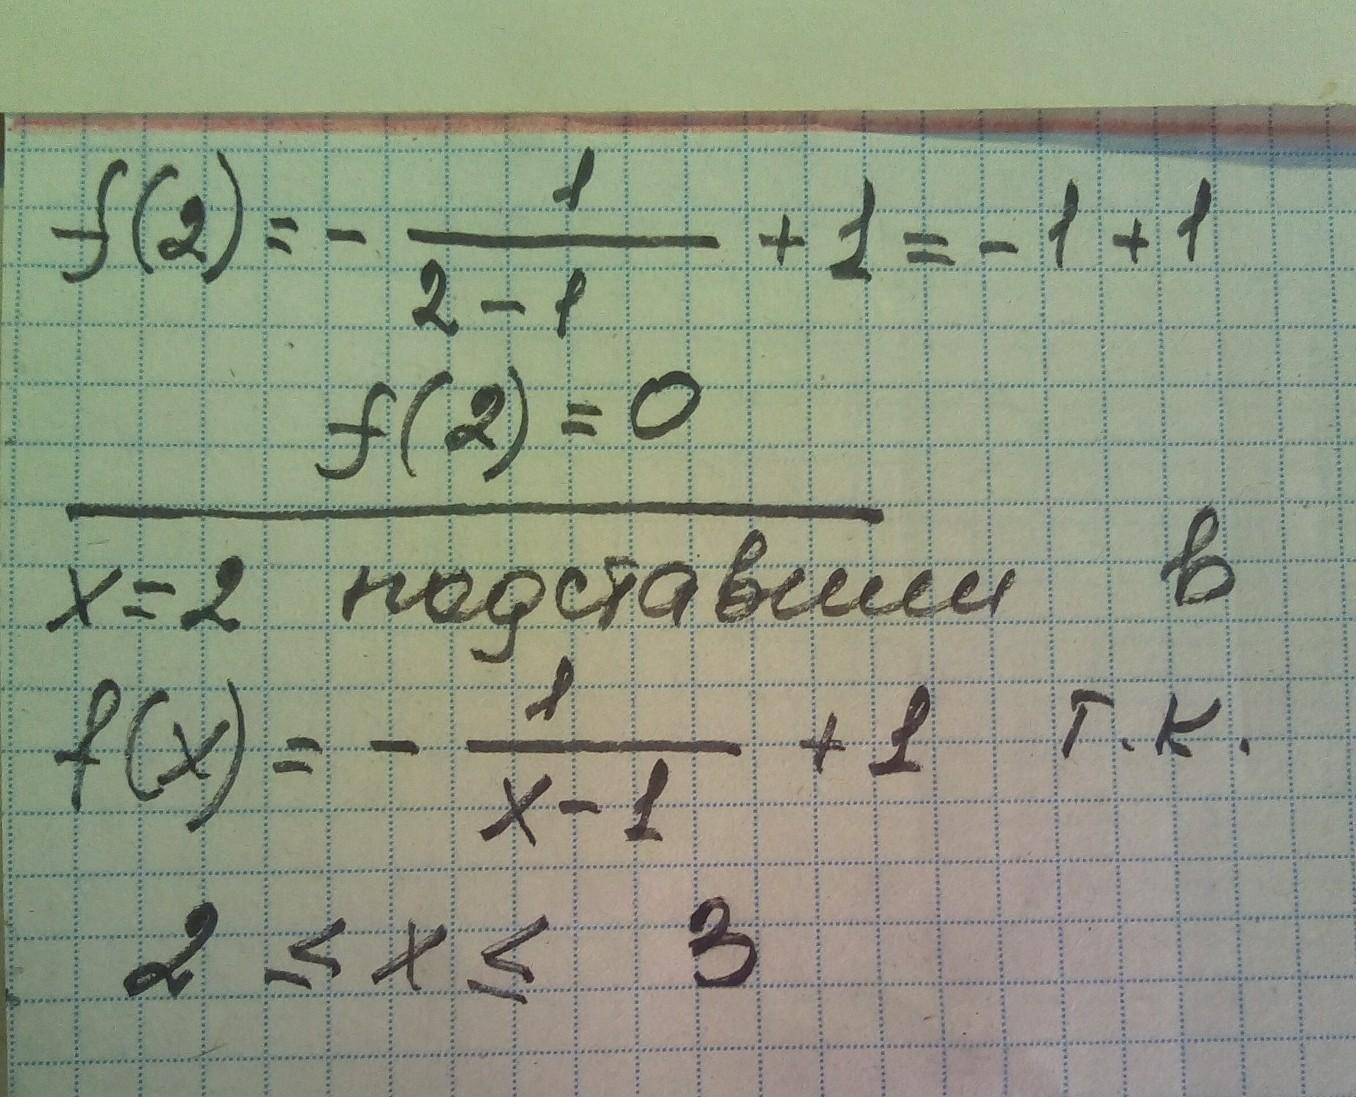 f(2) = - 1/(2 - 1) + 1 = - 1 + 1
f(2) = 0
x = 2 подставим в
f(x) = - 1/(x - 1) + 1 т.к.
2 ≤ x ≤ 3